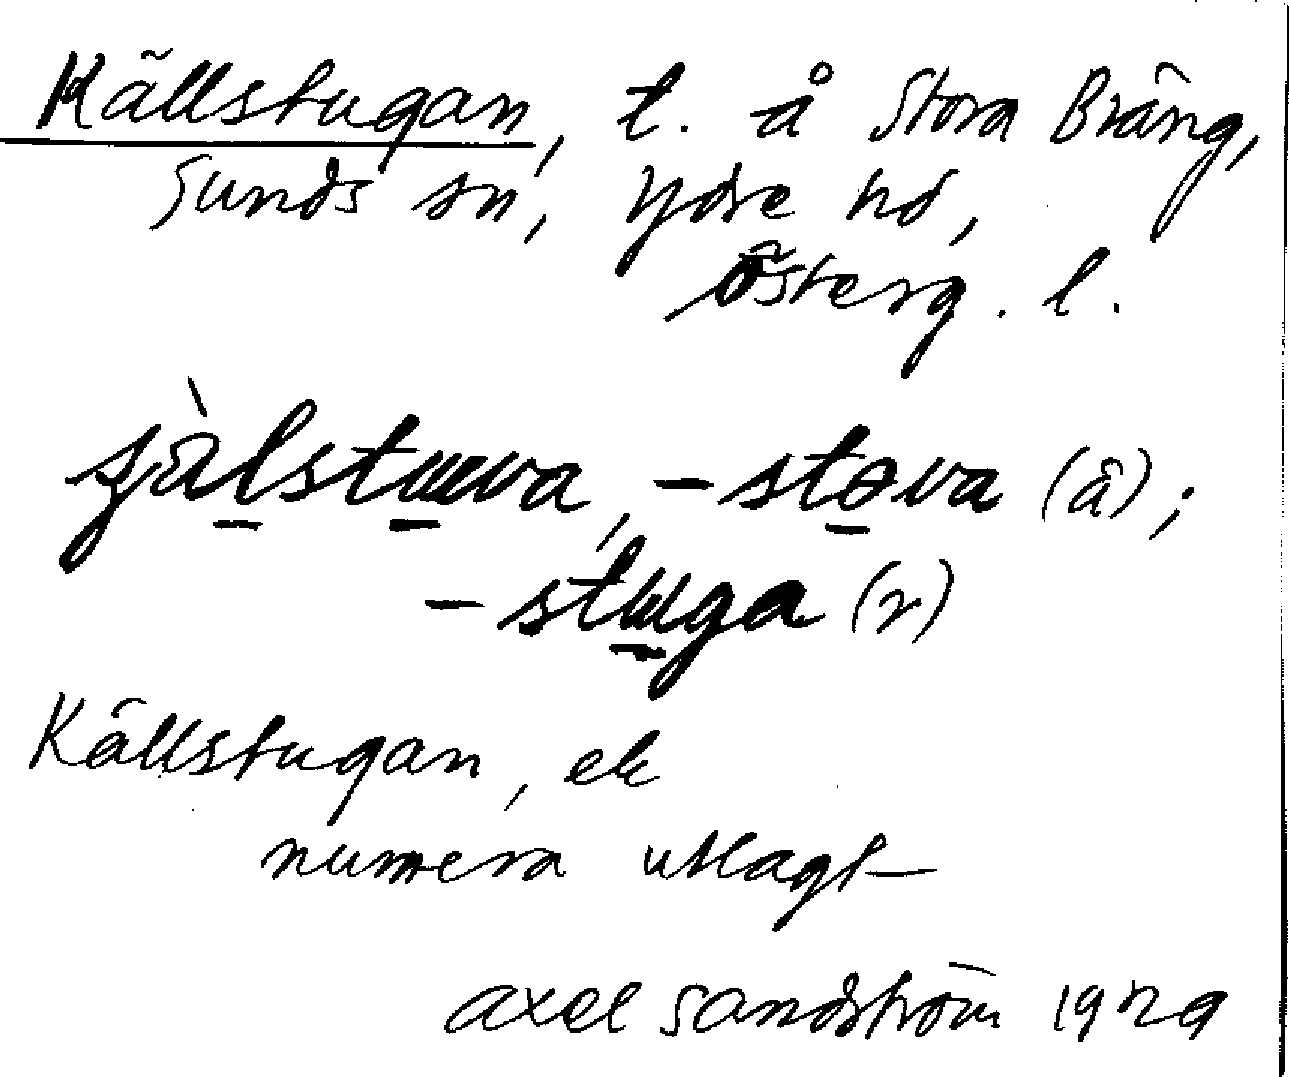 Källstugan, t. å Stora Bräng,
Sunds sn, Ydre hd,
Österg. l.
-stova (å);
-stuga (r)
Källstugan, ek
numera utlagt
Axel Sandström 1929